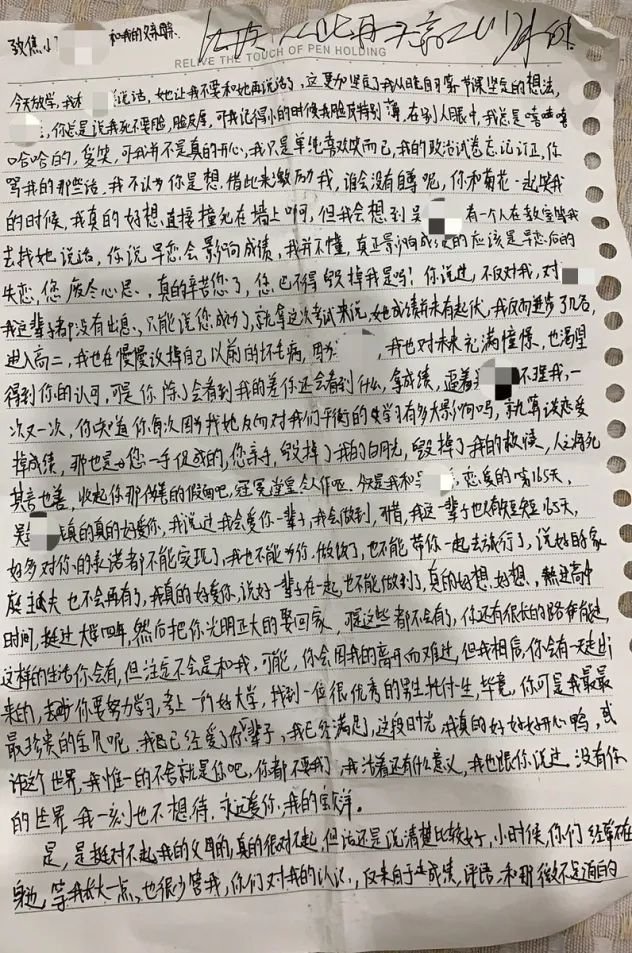 致焦 和我的父母亲
RELIVE THE TOUCH OF PEN HOLDING
今天放学,我和 说话,她让我不要和她再说话了,这更加坚定了我从 节课坚定的想法,
你总是说我死不要脸,脸皮厚,可我记得小的时候我脸皮特别薄,在别人眼中,我总是嘻嘻嘻
哈哈的,傻笑,可我并不是真的开心,我只是单纯喜欢笑而已,我的政治试卷忘记订正,你
骂我的那些话,我不认为你是想借此来激励我,谁会没有自尊呢,你和菊花一起笑我
的时候,我真的好想直接撞死在墙上啊,但我会想到吴 有一个人在教室等我
去找她说话,你说早恋会影响成绩,我并不懂,真正影响成绩的应该是早恋后的
失恋,您废尽心思,真的辛苦您了,您巴不得毁掉我是吗!你说过,不仅对我,对
我这辈子都没有出息,只能说您成功了,就拿这次考试来说,她成绩并未有起伏,我反而进步了几名,
进入高二,我也在慢慢改掉自己以前的坏毛病,因为 ,我也对未来充满憧憬,也渴望
得到你的认可,可是你除了会看到我的差你还会看到什么,拿成绩, 不理我,一
次又一次,你知道你每次因为我 她反而对我们平衡的 学习有多大影响吗,就算谈恋爱
掉成绩,那也是 您一手促成的,您亲手,毁掉了我的白月光,毁掉了我的救赎,人之将死
其言也善,收起你那伪善的假面吧,冠冕堂皇 今是我和 恋爱的第165天,
吴 真的真的好爱你,我说过我会爱你一辈子,我会做到,可惜,我这一辈子也只有短短165天,
好多对你的承诺都不能实现了,我也不能为你做饭了,也不能带你一起去旅行了,说好的家
庭 也不会再有了,我真的好爱你,说好一辈子在一起,也不能做到了,真的好想,好想,熬过高中
时间,挺过大学四年,然后把你光明正大的娶回家,可是这些都不会有了,你还有很长的路
这样的生活你会有,但注定不会是和我,可能,你会因我的离开而难过,但我相信,你会有一天走出
来的, 你要努力学习,考上一所好大学,找到一位很优秀的男生托付一生,毕竟,你可是我最最
最珍贵的宝贝呢,我 已经爱了你 辈子,我已经满足,这段时光,我真的好好好开心鸭,或
许这个世界,我惟一的不舍就是你吧,你都不要我了,我活着还有什么意义,我也跟你说过,没有你
的世界,我一刻也不想待,永远爱你,我的宝
是,是挺对不起我的父母的,真的很对不起,但话还是说清楚比较好,小时候,你们经常不在
身边,等我长大一点,也很少管我,你们对我的认识,仅来自于 成绩,评语,和那